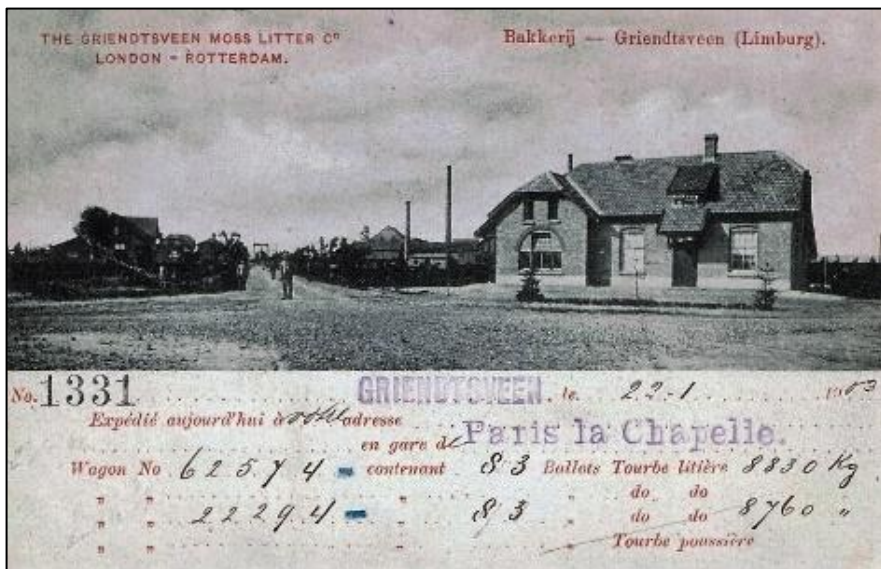 THE GRIENDTSVEEN MOSS LITTER Cº
LONDON - ROTTERDAM.
Bakkerij — Griendtsveen (Limburg).
No. 1331 GRIENDTSVEEN, le 22-1 1903
Expédié aujourd'hui à votre adresse
en gare de Paris la Chapelle.
Wagon No 62574 - contenant 83 Ballots Tourbe litière 8830 Kg
" " " " do do
" " 22294 - " 83 " do do 8760 "
" " " " Tourbe poussière